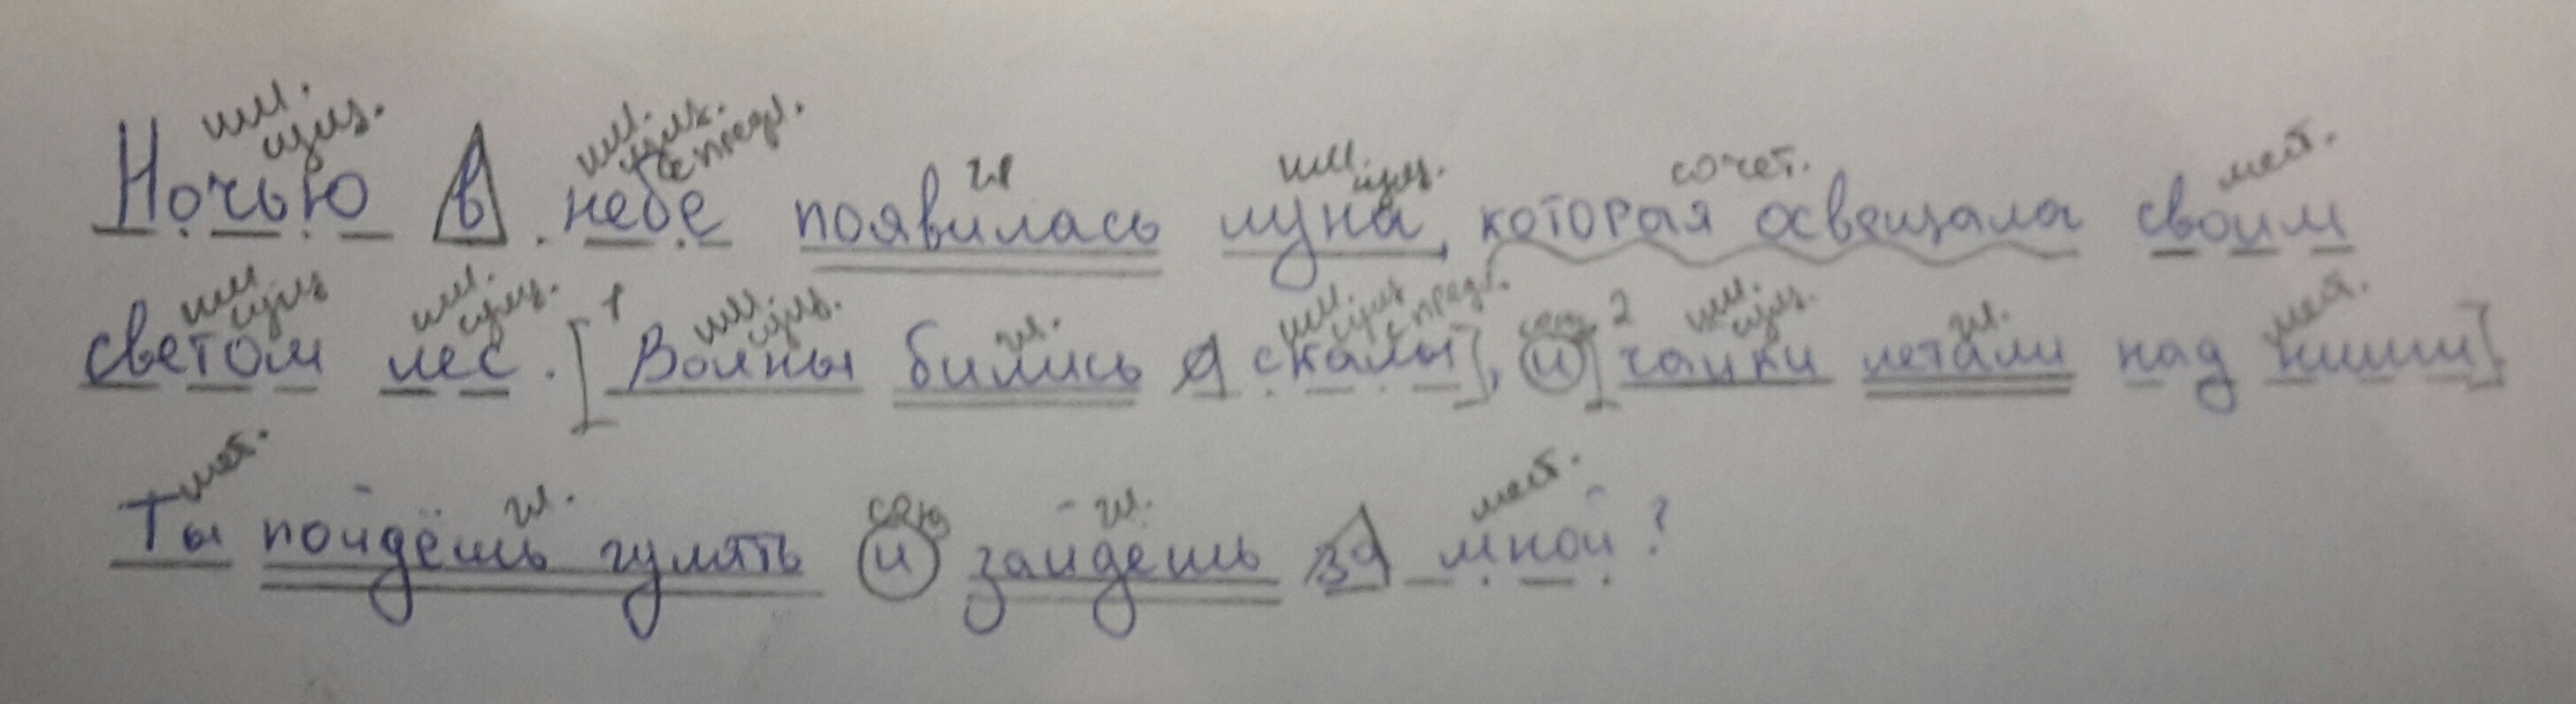 им. сущ. им. сущ. с предл. гл им. сущ. сочет. мест.
Ночью в небе появилась луна, которая освещала своим
им сущ им. сущ. 1 им. сущ. гл. им. сущ с предл. союз 2 им. сущ. гл. мест.
светом лес. [Волны бились о скалы], и [чайки летали над ними]
мест. гл. союз гл. мест.
Ты пойдёшь гулять и зайдёшь за мной?